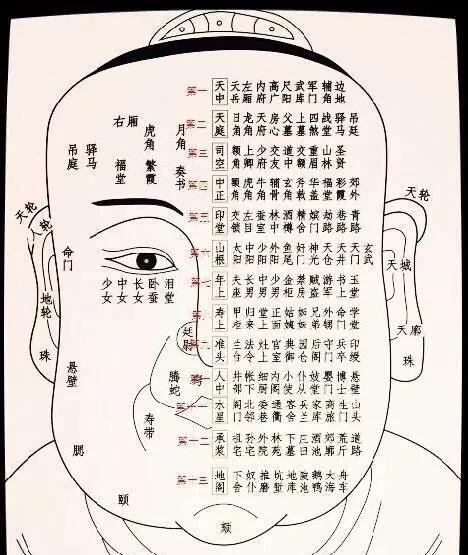 第一 天中 天岳 左厢 内府 高广 尺阳 武库 军门 辅角 边地
第二 天庭 日角 龙角 天府 房心 父墓 上墓 四煞 战堂 驿马 吊庭
第三 司空 额角 上卿 少府 交友 道中 交额 重眉 山林 圣贤
第四 中正 额角 虎角 牛角 辅骨 玄角 斧戟 华盖 福堂 彩霞 郊外
第五 印堂 交锁 左目 蚕室 林中 酒樽 精舍 嫔门 劫路 巷路 青路
第六 山根 太阳 中阳 少阳 外阳 鱼尾 奸门 神光 天仓 天井 天门 玄武
第七 年上 夫座 长男 中男 少男 金柜 禁房 贼盗 游军 书上 玉堂
第八 寿上 甲柜 归来 堂上 正面 姑姨 姊妹 兄弟 外甥 命门 学堂
第九 准头 兰台 法令 灶上 宫室 典御 园仓 后阁 守门 兵卒 印绶
人中 井部 帐下 细厨 内阁 小使 仆从 妓堂 婴门 博士 悬壁
第十一 水星 阁门 北邻 委巷 通衢 客舍 兵兰 家库 商旅 生门 山头
第十二 承浆 祖宅 孙宅 外院 林苑 下墓 庄田 酒池 郊廊 荒丘 道路
第十三 地阁 下舍 奴仆 推磨 坑堑 地库 陂池 鹅鸭 大海 舟车
右厢
虎角
月角
吊庭
驿马
福堂
繁霞
奏书
天轮
人轮
命门
少女
中女
长女
卧蚕
泪堂
地轮
珠
悬壁
廷尉
腾蛇
寿带
腮
颐
颏
天轮
天城
天廓
珠